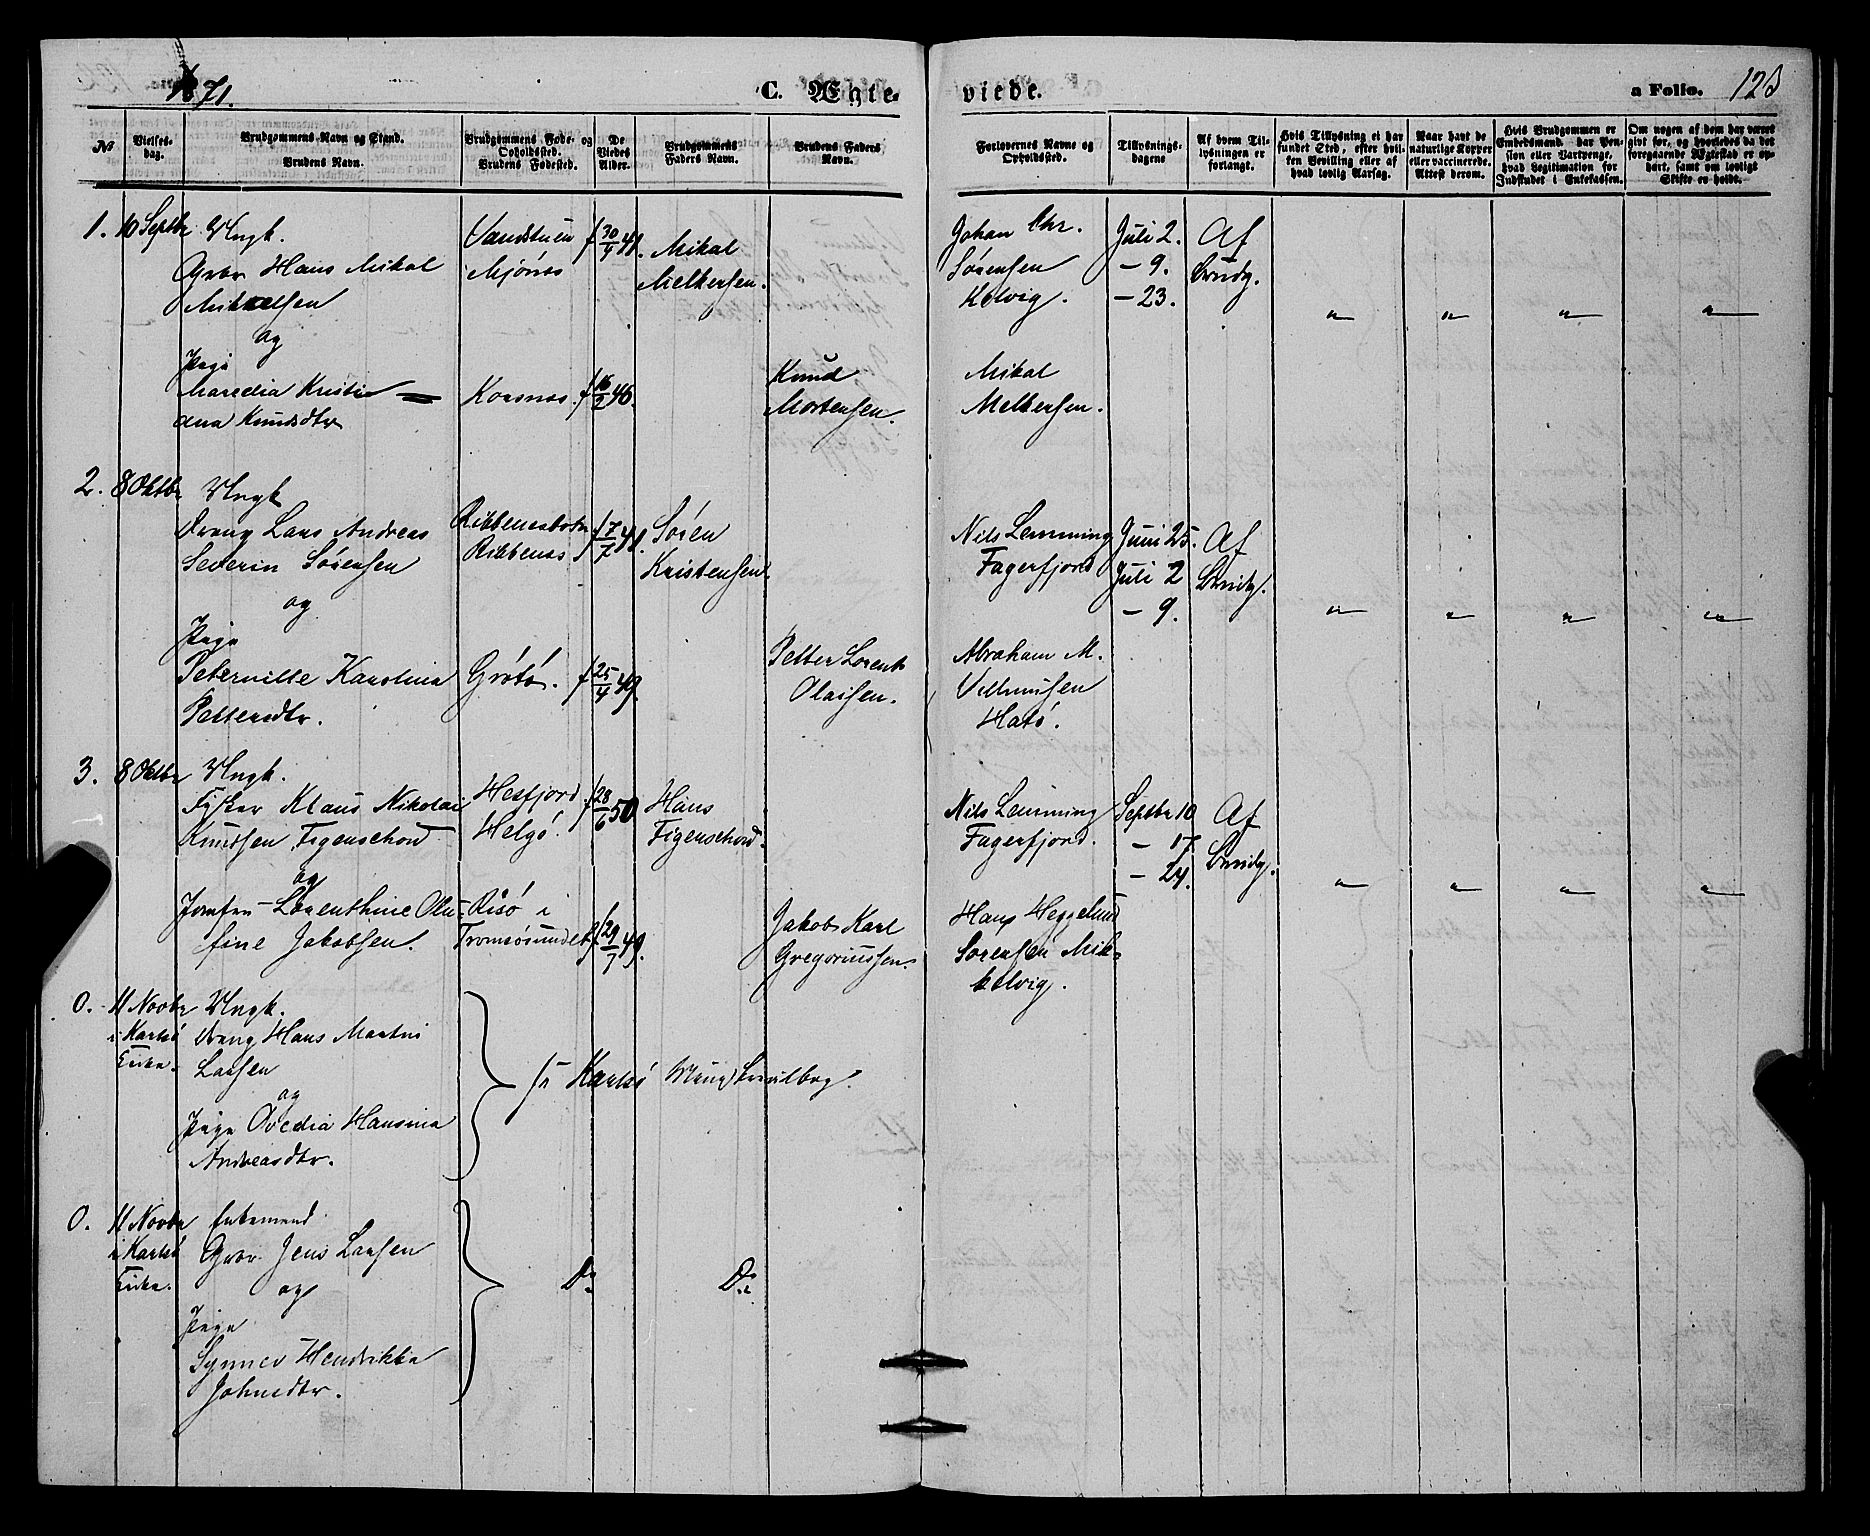 1871.
C. Ægte-
viede.
a Folio. 123
No
Vielses-
dag.
Brudgommens Navn og Stand.
Brudens Navn.
Brudgommens Føde- og
Opholdssted.
Brudens Fødested.
De
Viedes
Alder.
Brudgommens
Faders Navn.
Brudens Faders
Navn.
Forlovernes Navne og
Opholdssted.
Tillysnings-
dagene
Af hvem Til-
lysningen er
forlangt.
Hvis Tillysning ei har
fundet Sted, efter hvil-
ken Bevilling eller af
hvad lovlig Aarsag.
Naar havt de
naturlige Kopper
eller vaccinerede.
Attest derom.
Hvis Brudgommen er
Embedsmand, har Pen-
sion eller Vartpenge,
hvad Legitimation for
Indskudet i Enkekassen.
Om nogen af dem har været
gift før, og hvorledes da det
foregaaende Ægteskab er op-
hørt, samt om lovligt
Skifte er holdt.
1. 10 Septbr
Ungk.
Gbr Hans Mikal
Mikkelsen
og
Pige
Maredia Kristi-
ana Knudsdtr
Vandstuen
Mjönes
Korsnes.
f 30/9 41.
f 16/2 46.
Mikal
Melkersen.
Knud
Mortensen.
Johan Chr.
Sörensen
Kolvig.
Mikal
Melkersen.
Juli 2.
- 9.
- 23.
Af
Brudg.
" " " "
2. 8 Oktbr
Ungk
Dreng Lars Andreas
Severin Sörensen
og
Pige
Peternille Karolina
Pettersdtr.
Ribbenesbotn
Ribbenes
Grötö.
f 7/7 41.
f 25/4 49.
Sören
Kristensen
Petter Lorents
Olaisen.
Nils Lemming
Fagerfjord
Abraham M.
Vilhmsen
Hatö.
Juni 25.
Juli 2
- 9.
Af
Brudg.
" " " "
3. 8 Oktbr
Ungk.
Fisker Klaus Nikolai
Knudsen Figenschou
og
Jomfru Lorenthine Olu-
fine Jakobsen.
Hesfjord
Helgö.
Risö i
Tromsösundet
f 28/6 50
f 29/7 49.
Hans
Figenschou.
Jakob Karl
Gregoriussen.
Nils Lemming
Fagerfjord.
Hans Heggelund
Sörensen Mik-
kelvig.
Septbr 10
- 17
- 24.
Af
Brudg.
" " " "
0. 11 Novbr
i Karlsö
Kirke.
Ungk.
Dreng Hans Martin
Larsen
og
Pige Ovedia Hansina
Andreasdtr.
Karlsö
0. 11 Novbr
i Karlsö
Kirke.
Enkemand
Gbr. Jens Larsen
og
Pige
Synnev Hendrikka
Johnsdtr.
Do Do